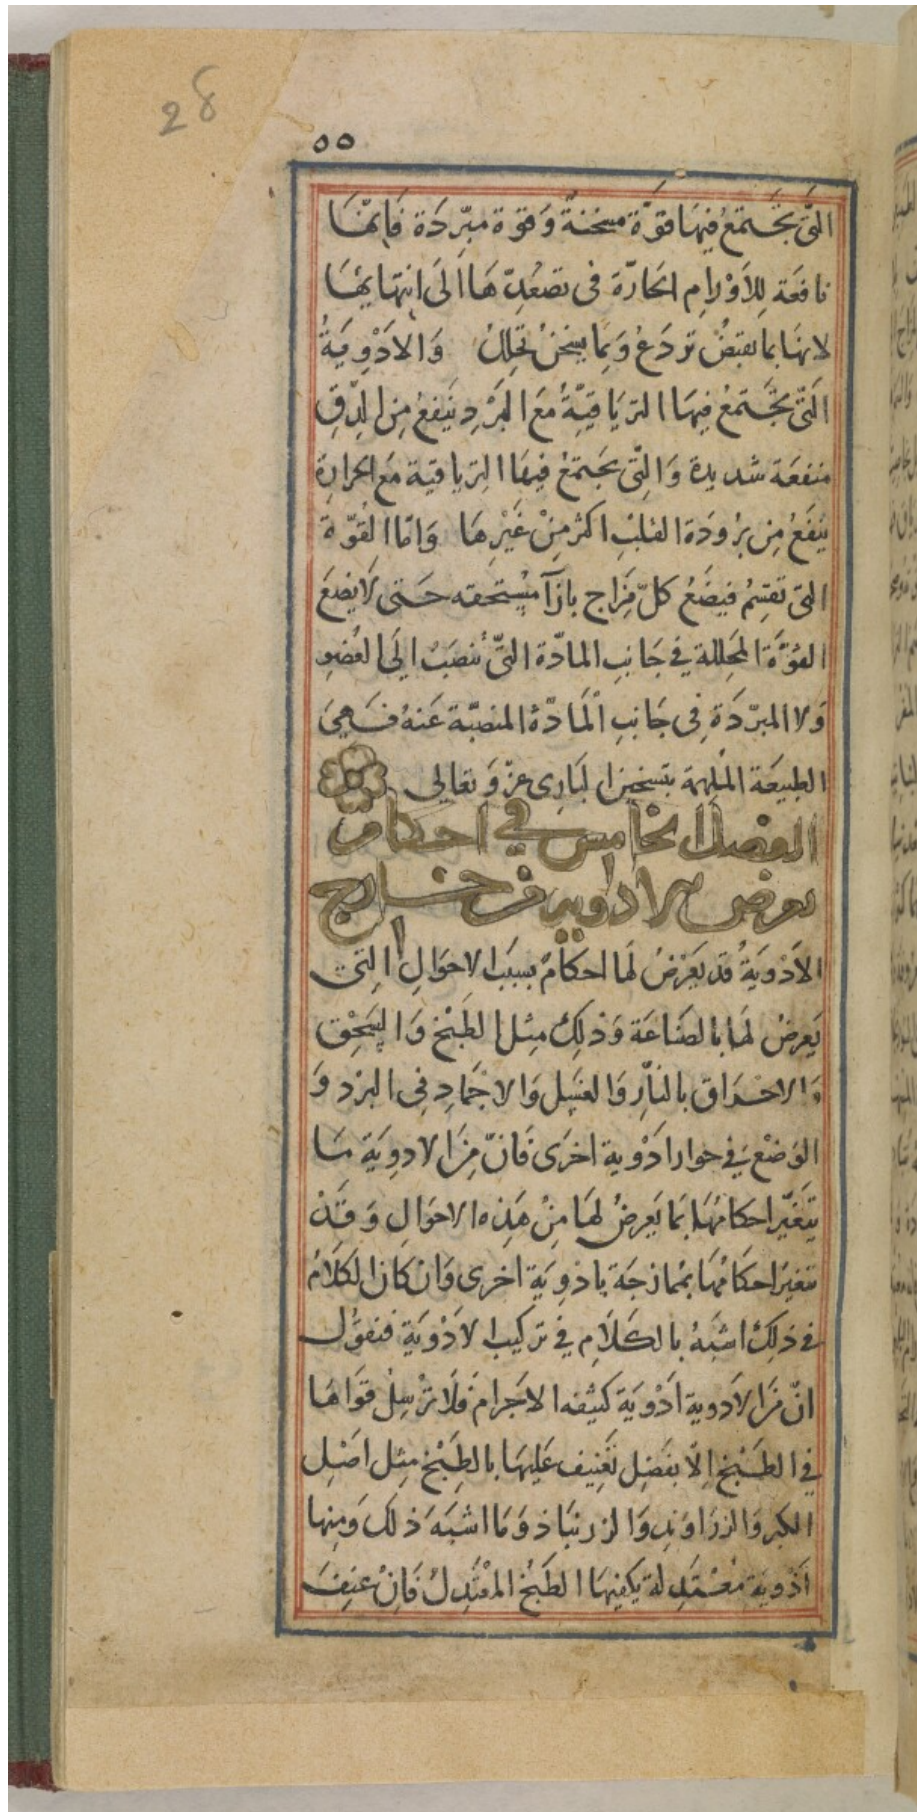 28
٥٥
الَّتى تَجَتمعُ فيهَا قوَّة مسخنةٌ وَقوة مبرّدَة فَانّهَا
نافعَة لِلاَوْرامِ الحَارّة فى تصَعُدِّهَا اَلَى انتهايهَا
لانهَا بما يقبضُ تردَعُ وَبِمَا يسخنُ تحَلِلُ وَالادْوِيَةُ
الَتّى تَجتَمعُ فيهَا الترياقيّةُ مَعَ البَرْدِ يَنفعُ مِنَ الدِّق
منفعَة شديدة وَالتّى يجَتمعُ فيهَا الترياقية مَع الحرارة
يَنفَعُ مِن برُودَة القلبِ اكثر مِنْ غَيْرِهَا وَامّا القُوّة
التى تقسِمُ فيضَعُ كلّ مِزَاج بازآ مُستَحقه حَتى لَا يضعَ
القوَّة المحَللة في جَانبِ المادّة التَّى تُنصَبُ اِلَى العُضوِ
وَلا المبرّدَة فِى جَانبِ الْمَادّة المنصبَّة عَنهُ فَهىَ
الطبيعَة المُلهمَة بتسخير البَارِى عزّ وَ تعالى
الفصل الخامس في احكام
يعرض للادوية من خارج
الاَدْويَةُ قد يَعْرْضُ لهَا احكامٌ بسبَبِ الاحوَالِ الّتى
يَعرضُ لهَا بالصّنَاعَة وَذلِكَ مِثل الطَبْخ وَالسَحْقِ
وَالاحْرَاق بالنَّارِ وَالغَسل وَالاجْمَادِ فِى البَرْد وَ
الوَضْع في جوار ادْوية اخرَى فَانّ مِنَ الادوِيَة مَا
يتغَيّر احكامُهَا بمَا يَعرضُ لهَا مِنْ هَذِه الاحوَالِ وَقَدْ
تتغيرَ احكَامُهَا بمُمَازجَة بادْوِيَة اخرى وَان كَان الكلَامُ
في ذلِكَ اشبَهُ بالكلَامِ في تركيب الادْوَيَة فنقوُل
انّ مِنَ الادَوية ادْوَيَة كثيفه الاجرَام فَلَا تُرْسِلُ قوَاهَا
في الطَبْخ اِلّا بفَضِل تَعنيف عَليهَا بالطَبْخ مِثل اصْلِ
الكبر وَالزرَاوَندِ وَالزرنبَاذ وَمَا اشبَهَ ذلكَ وَمِنها
ادْويَة مُعْتَدلة يكفيهَا الطَبخُ المعْتَدلُ فَانْ عنِفَ